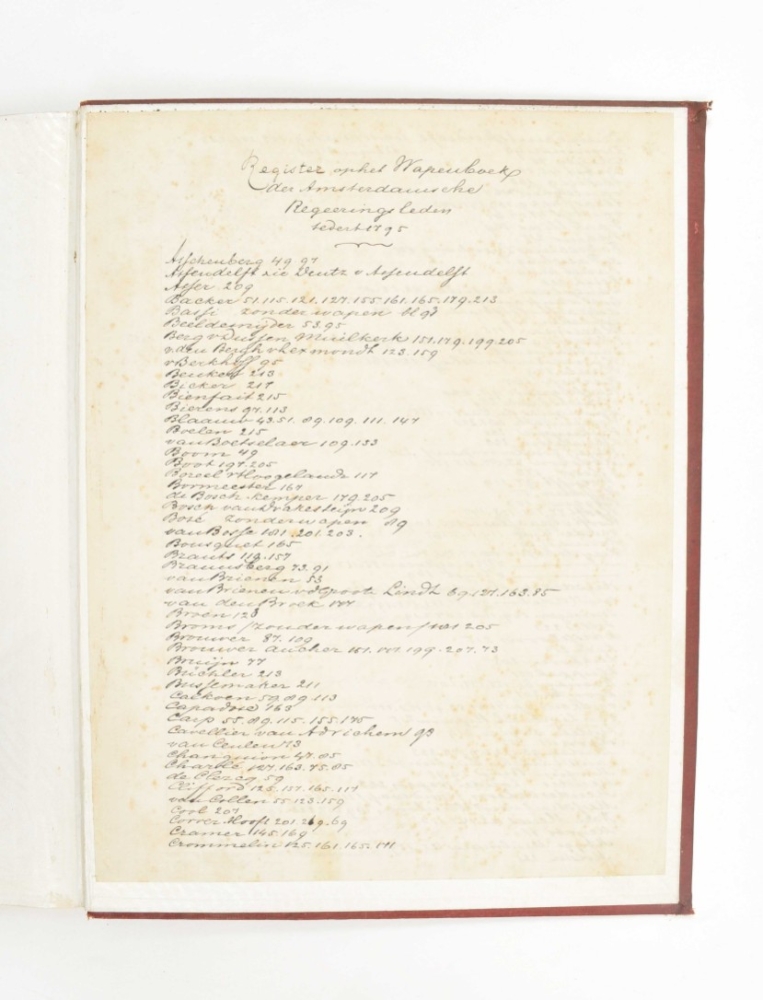 Register op het Wapenboek
der Amsterdamsche
Regeeringsleden
sedert 1795
Asschenberg 49.97
Assendelft zie Deutz v Assendelft
Asser 209
Backer 51.115.121.127.155.161.165.179.213
Bassi zonder wapen bl 93
Beeldesnijder 53.95
Berg v Dussen Muilkerk 151.179.199.205
v den Bergh v Lexmondt 123.159
v Berkhoff 95
Beuker 213
Bicker 217
Bienfait 215
Bierens 97.113
Blaauw 43.51.89.109.111.147
Boelen 215
van Boetselaer 109.133
Boom 49
Boot 197.205
Boreel v Hoogelande 117
Bormeester 167
de Bosch kemper 179.205
Bosch van Drakesteijn 209
Bosé zonder wapen 89
van Bosse 181.201.203.
Bousquet 165
Brants 119.157
Braunsberg 73.91
van Brienen 53
van Brienen v d Groote Lindt 69.127.163.85
van den Broek 177
Broen 123
Broms /zonder wapen/ 181 205
Brouwer 87.109
Brouwer Ancher 151.177.199.207.73
Bruijn 77
Büchler 213
Bussemaker 211
Calkoen 59.89.113
Capadose 163
Carp 55.89.115.155.175
Cavellier van Adrichem 93
van Ceulen 53
Changuion 47.85
Charlé 127.163.75.85
de Clercq 59
Clifford 125.157.165.117
van Collen 55.123.159
Cool 207
Corver Hooft 201.219.69
Cramer 145.169
Crommelin 125.161.165.171